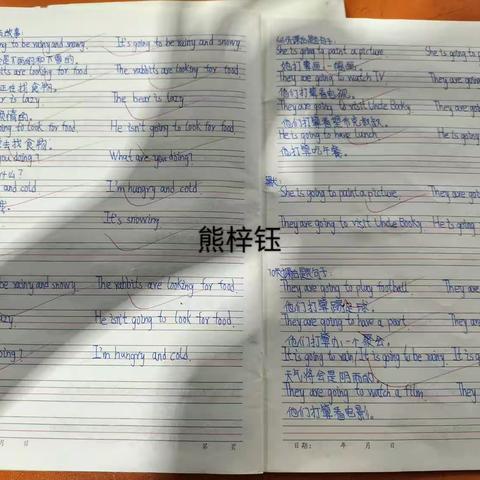 故事:
ng to be rainy and snowy. It's going to be rainy and snowy.
abbits are looking for food. The rabbits are looking for food.
在找食物。
ear is lazy. The bear is lazy.
going to look for food. He isn't going to look for food.
去找食物。
you doing? What are you doing?
and cold I'm hungry and cold.
It's snowing.
be rainy and snowy. The rabbits are looking for food.
azy He isn't going to look for food.
oing? I'm hungry and cold.
月 日 第 页
She is going to paint a picture She is going to p
They are going to watch TV They are going
他们打算看电视。
They are going to visit Uncle Booky They are go
He is going to have lunch He is going
他打算吃午餐。
She is going to paint a picture. They are go
They are going to visit Uncle Booky He is going
熊梓钰
They are going to play football. They are
They are going to have a part. They are
他们打算办一个聚会。
It is going to rain, It is going to be rainy. It is g
天气将会是阴雨的
They are going to watch a film. They
他们打算看电影。
日期: 年 月 日